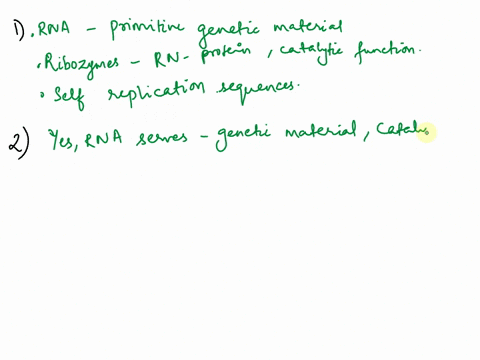 1) . RNA - primitive genetic material
. Ribozymes - RN- protein, catalytic function.
• Self replication sequences.
2) Yes, RNA serves - genetic material, Catal